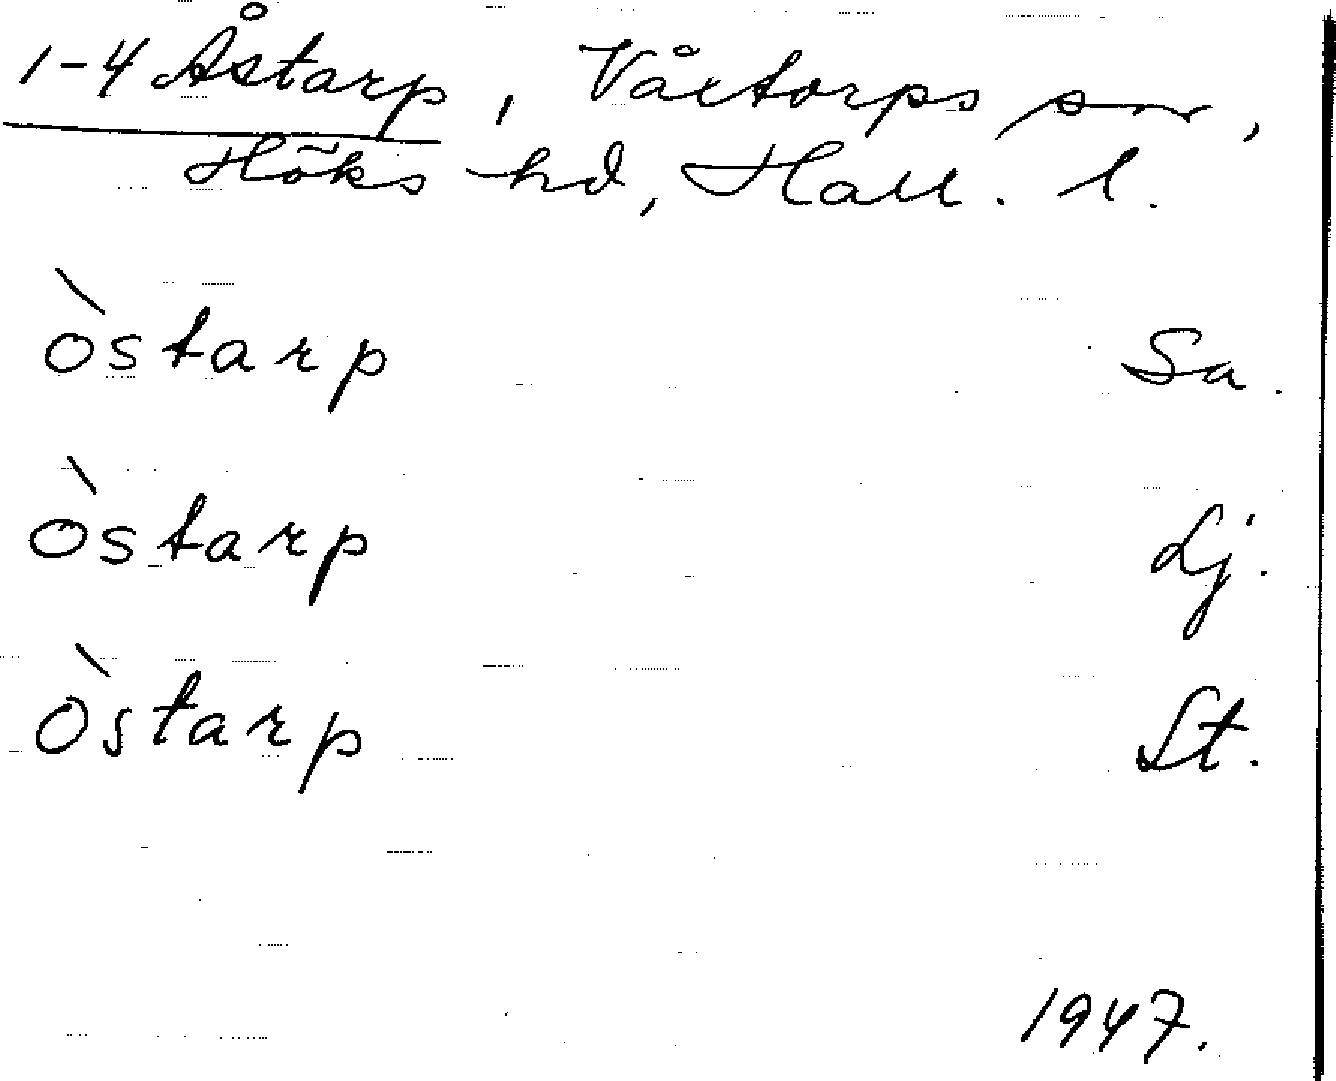 1-4 Åstarp, Våxtorps sn,
Höks hd, Hall. l.
òstarp Sa.
òstarp Lj.
òstarp St.
1947.